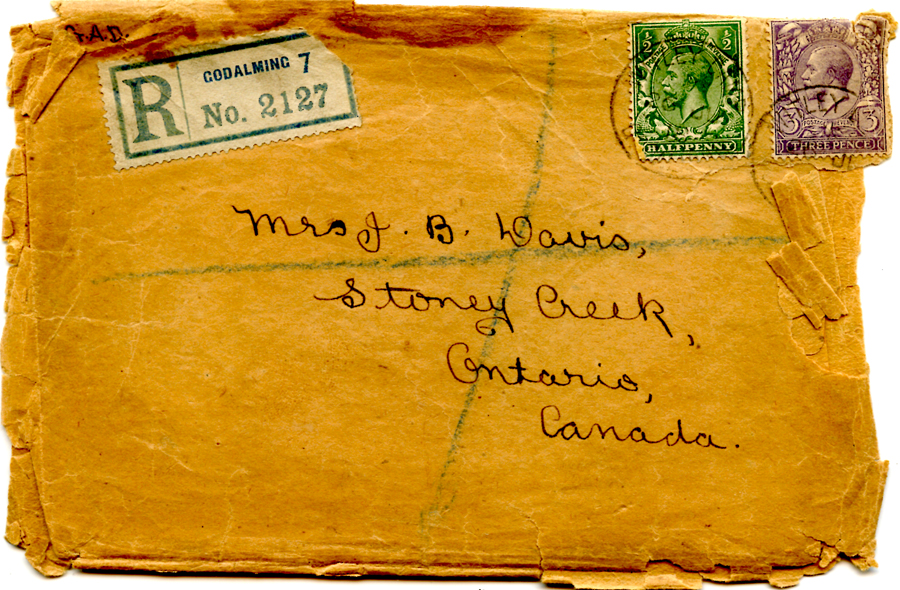 J.A.D.
R
GODALMING 7
No. 2127
½ ½
HALFPENNY
3 3
THREE PENCE
Mrs J. B. Davis,
Stoney Creek,
Ontario,
Canada.